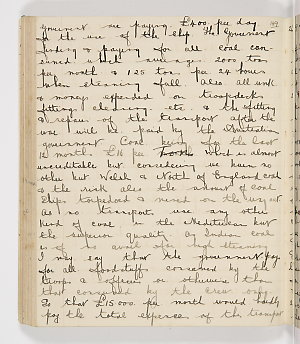 goverment are paying £400 per day
for the use of the ship. The Goverment
finding & paying for all coal con-
sumed which averages 2000 tons
per month & 125 tons per 24 hours
when steaming full. Also all work
& money expended on troopdecks
fitting cleaning etc. & the refitting
& repair of the transport after the
war will be paid by the Australian
goverment. Coal being for the last
12 months £16 per which is almost
uncreditable but considering we burn no
other but Welsh & North of England coal
& the risk also the amount of coal
ships torpedoed & mined on the way out
As no transport use any other
kind of coal in the Mediterian but
the superior quality as Indian coal
is of no avail for high steaming
I may say that the goverment pay
for all foodstuffs consumed by the
troops & officers or otherwise than
that consumed by the crew only.
So that £15000 per month would hardly
pay the total expenses of the transport